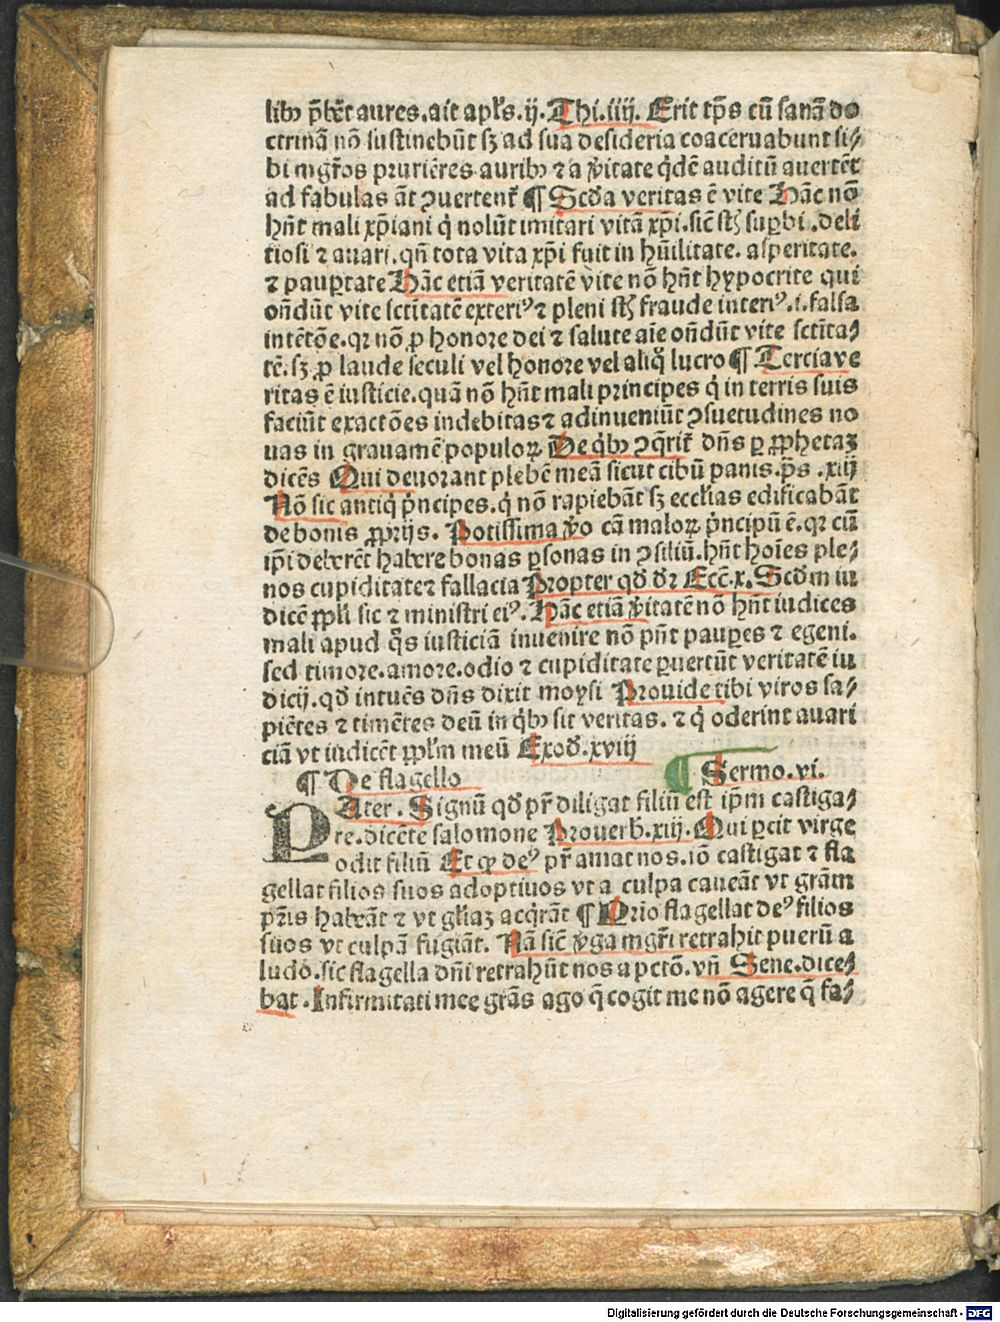 libꝫ p̄bēt aures. ait apl̄s. ij. Thi. iiij. Erit tp̄s cū sanā do
ctrinā nō sustinebūt sꝫ ad sua desideria coaceruabunt si⸗
bi mgr̄os pruriētes auribꝫ ⁊ a v̄itate q̇dē auditū auertēt
ad fabulas āt ꝯuertent̄ ¶ Scd̄a veritas ē vite Hāc nō
hn̄t mali xp̄iani q̇ nolūt imitari vitā xp̄i. sic̄ st̄ suꝑbi. deli
tiosi ⁊ auari. qn̄ tota vita xp̄i fuit in hūilitate. asperitate.
⁊ pauꝑtate Hāc etiā veritatē vite nō hn̄t hypocrite qui
on̄dūt vite sctītatē exteriꝰ ⁊ pleni st̄ fraude interiꝰ. i. falsa
intētōe. qꝛ nō ꝓ honore dei ⁊ salute aīe on̄dūt vite sctīta⸗
tē. sꝫ ꝓ laude seculi vel honore vel aliq̊ lucro ¶ Tercia ve
ritas ē iusticie. quā nō hn̄t mali principes q̇ in terris suis
faciūt exactōes indebitas ⁊ adinueniūt ꝯsuetudines no
uas in grauamē populoꝝ. De q̇bꝫ ꝯq̄rit̄ dn̄s ꝑ ꝓphetaꝫ
dicēs Qui deuorant plebē meā sicut cibū panis. ps̄. xiij
Nō sic antiq̇ ṗncipes. q̇ nō rapiebāt sꝫ eccl̄ias edificabāt
de bonis ꝓprijs. Potissima v̄o cā maloꝝ ṗncipū ē. qꝛ cū
ip̄i deberēt habere bonas ꝑsonas in ꝯsiliū. hn̄t hoīes ple⸗
nos cupiditate ⁊ fallacia Propter qd̄ dꝛ Ecc̄. x. Scd̄m iu
dicē ppl̄i sic ⁊ ministri eiꝰ. Hāc etiā v̄itatē nō hn̄t iudices
mali apud q̊s iusticiā inuenire nō pn̄t pauꝑes ⁊ egeni.
sed timore. amore. odio ⁊ cupiditate ꝑuertūt veritatē iu
dicij. qd̄ intuēs dn̄s dixit moysi Prouide tibi viros sa⸗
piētes ⁊ timētes deū in q̇bꝫ sit veritas. ⁊ q̇ oderint auari
ciā vt iudicēt ppl̄m meū Exod̄. xviij
¶ De flagello ¶ Sermo. vi.
PAter. Signū qd̄ pr̄ diligat filiū est ip̄m castiga⸗
re. dicēte salomone Prouerb. xiij. Qui ꝑcit virge
odit filiū Et qꝫ deꝰ pr̄ amat nos. iō castigat ⁊ fla
gellat filios suos adoptiuos vt a culpa caueāt vt grām
pr̄is habeāt ⁊ vt gl̄iaꝫ acq̇rāt ¶ Prīo flagellat deꝰ filios
suos vt culpā fugiāt. Nā sic̄ v̇ga mgr̄i retrahit puerū a
ludo. sic flagella dn̄i retrahūt nos a pctō. vn̄ Sene. dice⸗
bat. Infirmitati mee grās ago q̄ cogit me nō agere q̄ fa⸗
Digitalisierung gefördert durch die Deutsche Forschungsgemeinschaft - DFG